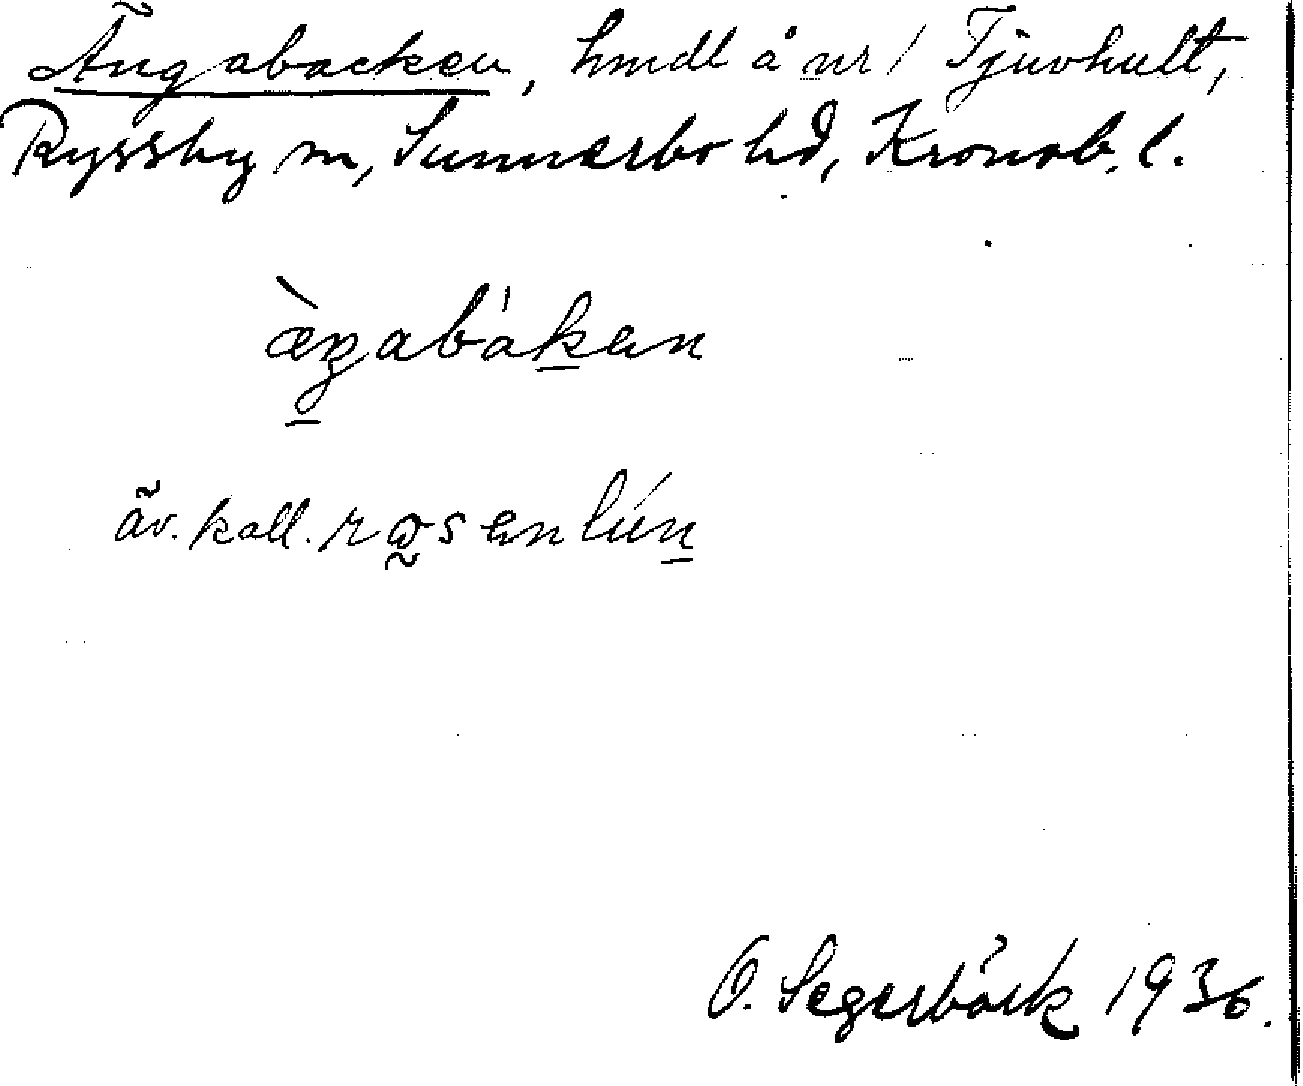 Ängabacken, hmdl å nr 1 Tjuvhult,
Ryssby sn, Sunnerbo hd, Kronob. l.
æ̀ŋabákan
äv. kall. rosenlún
O. Segerbäck 1936.